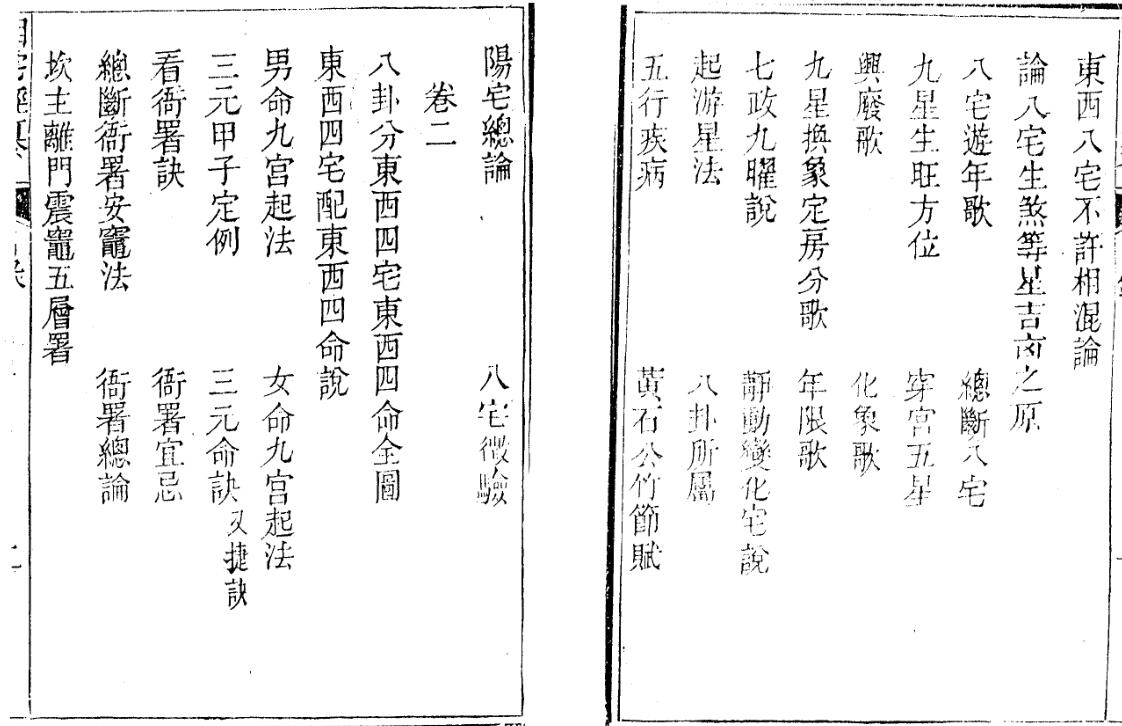 東西八宅不許相混論
論八宅生煞等星吉凶之原
八宅遊年歌 總斷八宅
九星生旺方位 穿宮五星
興廢歌 化象歌
九星換象定房分歌 年限歌
七政九曜說 靜動變化宅說
起游星法 八卦所屬
五行疾病 黃石公竹節賦
陽宅總論 八宅徵驗
卷二
八卦分東西四宅東西四命全圖
東西四宅配東西四命說
男命九宮起法 女命九宮起法
三元甲子定例 三元命訣又捷訣
看衙署訣 衙署宜忌
總斷衙署安竈法 衙署總論
坎主離門震竈五層署